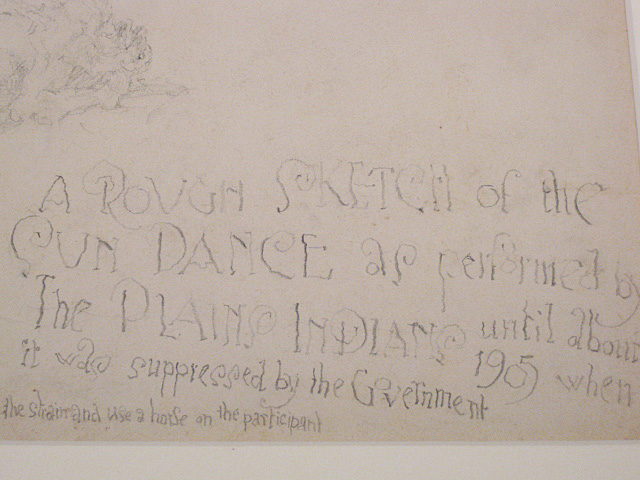 A ROUGH SKETCH of the
SUN DANCE as performed by
The PLAINS INDIANS until about
1905 when
it was suppressed by the Government
the strain and use a horse on the participant